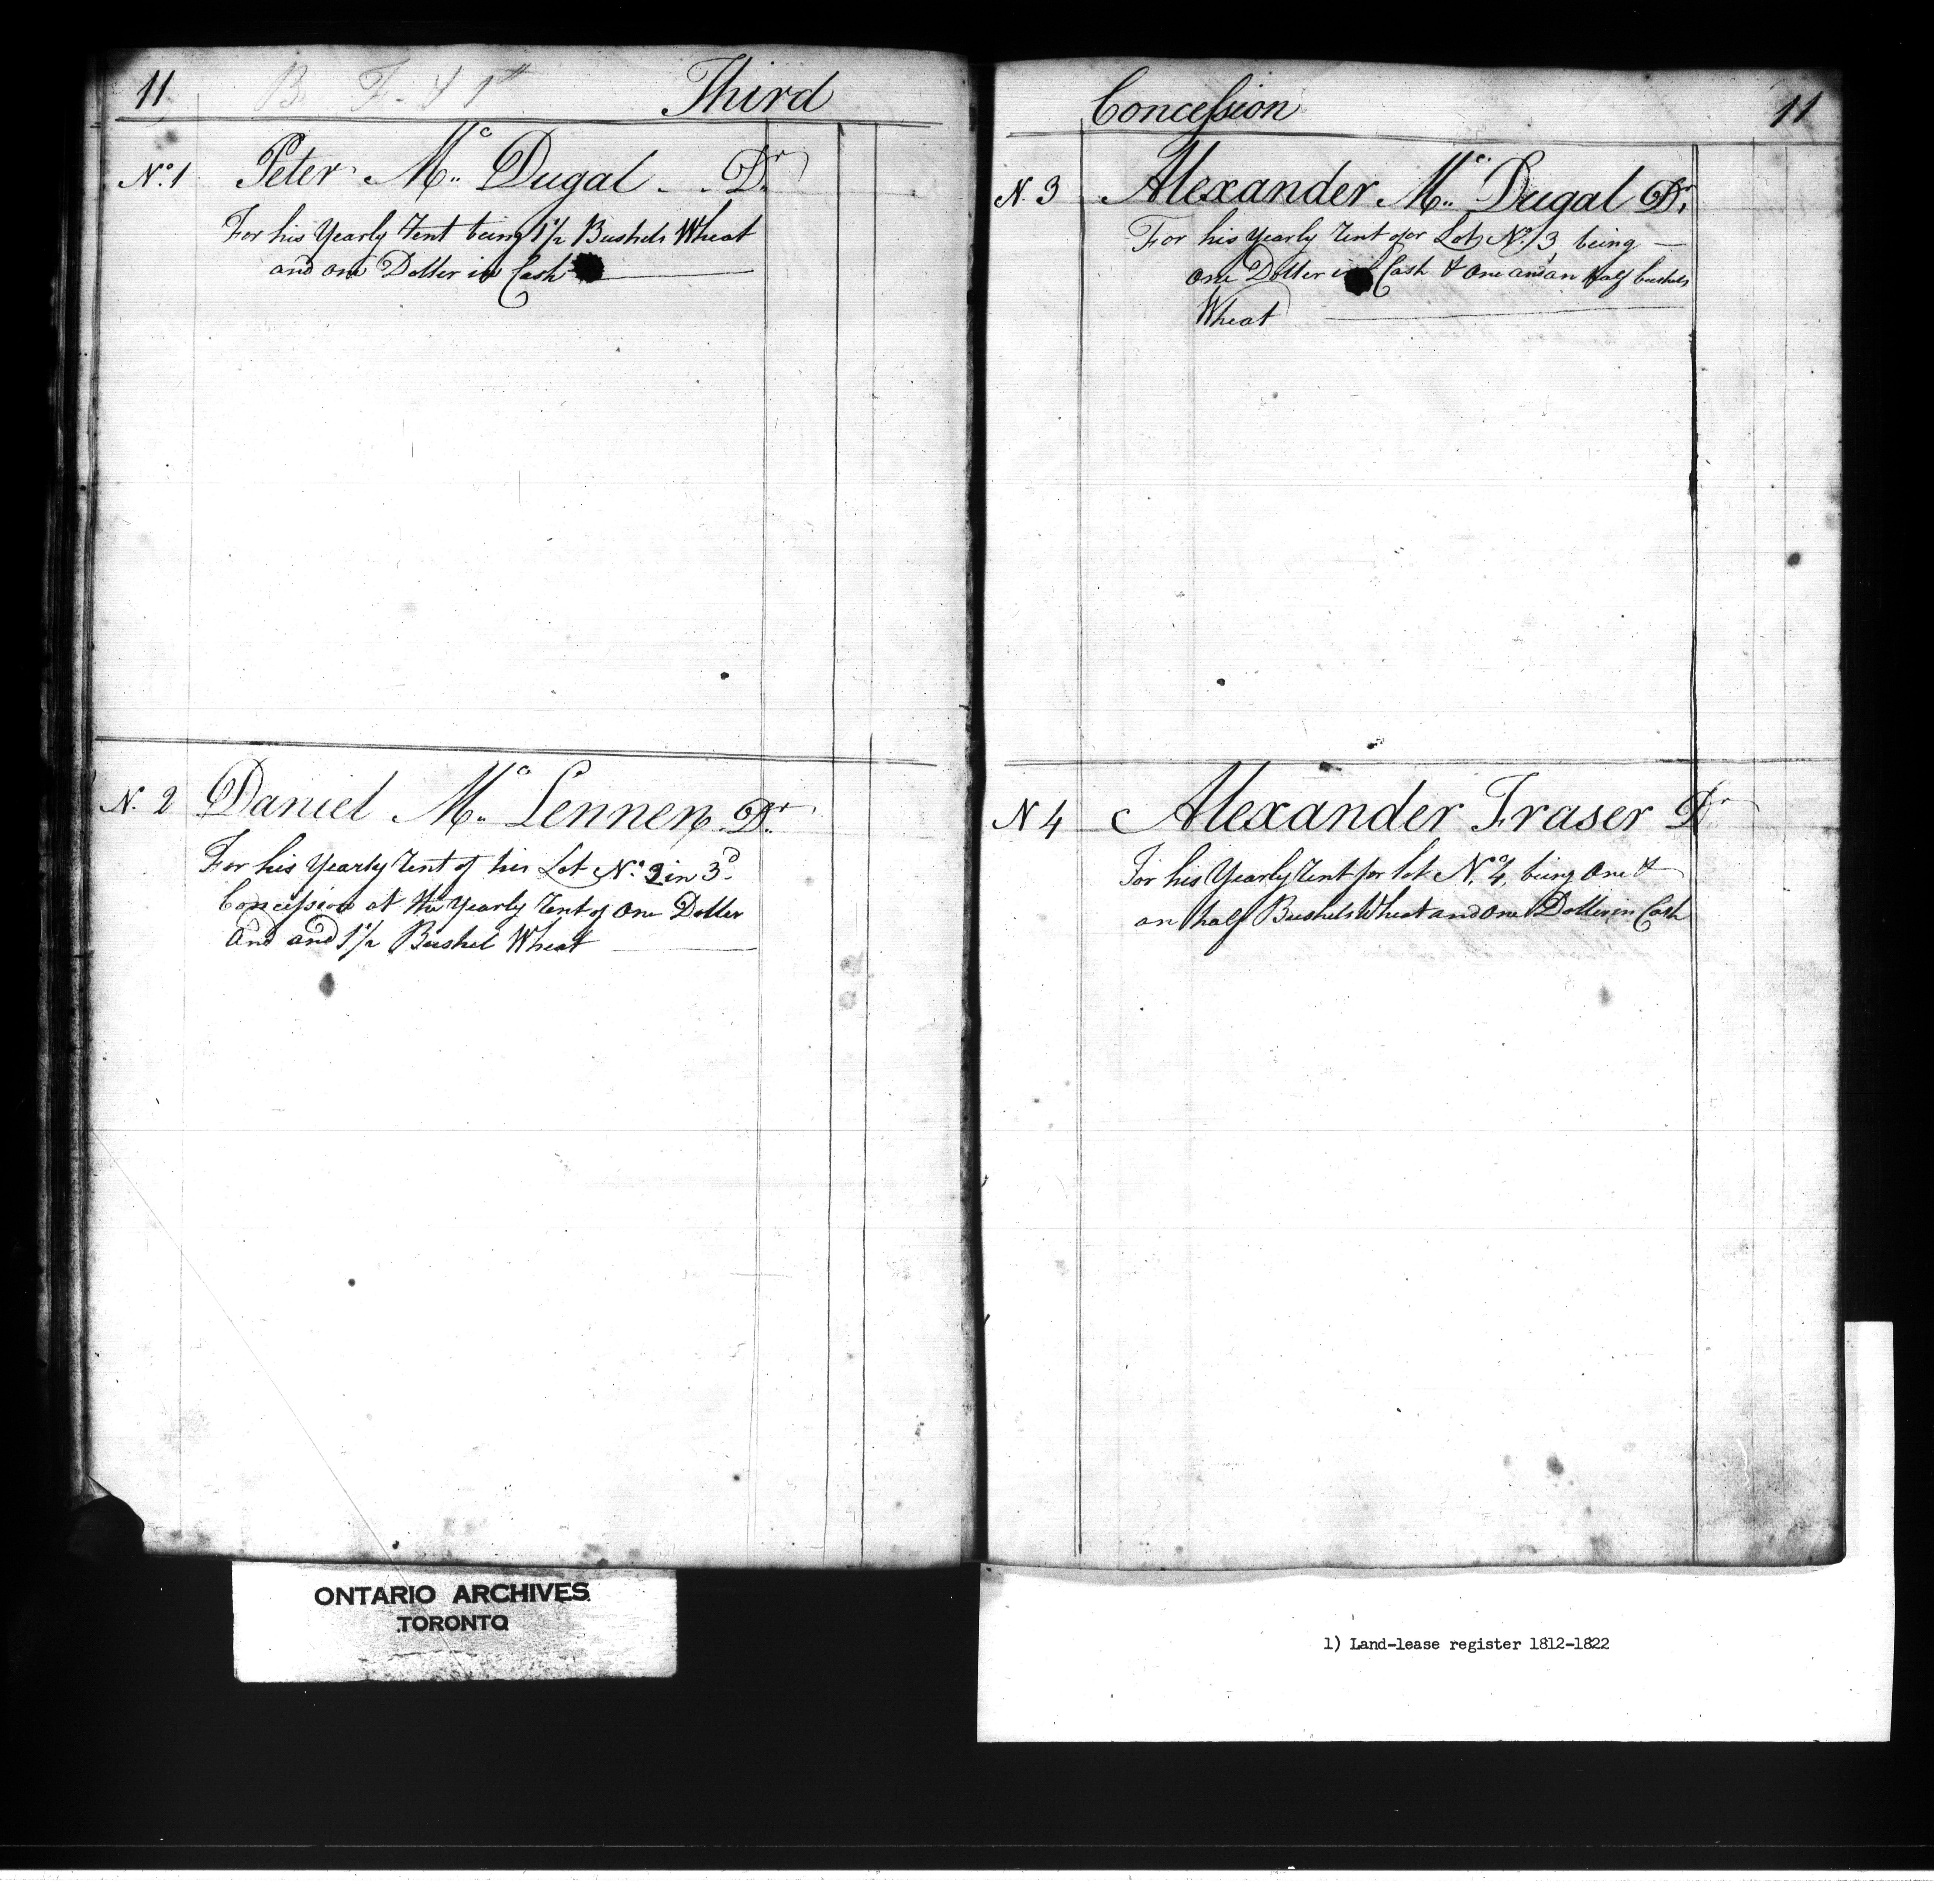 11 Third
No. 1 Peter Mc Dugal Dr
For his Yearly Rent being 1 1/2 Bushels Wheat
and one Doller in Cash
N. 2 Daniel Mc Lennen Dr
For his Yearly Rent of his Lot No. 2 in 3d
Concession at the Yearly Rent of One Doller
And and 1 1/2 Bushel Wheat
Concession 11
N. 3 Alexander Mc Dugal Dr
For his Yearly Rent for Lot No. 3 being
One Doller in Cash & One and an half bushels
Wheat
N 4 Alexander Fraser Dr
For his Yearly Rent for lot No. 4, being One &
an half Bushels Wheat and One Doller in Cash
ONTARIO ARCHIVES
TORONTO
1) Land-lease register 1812-1822